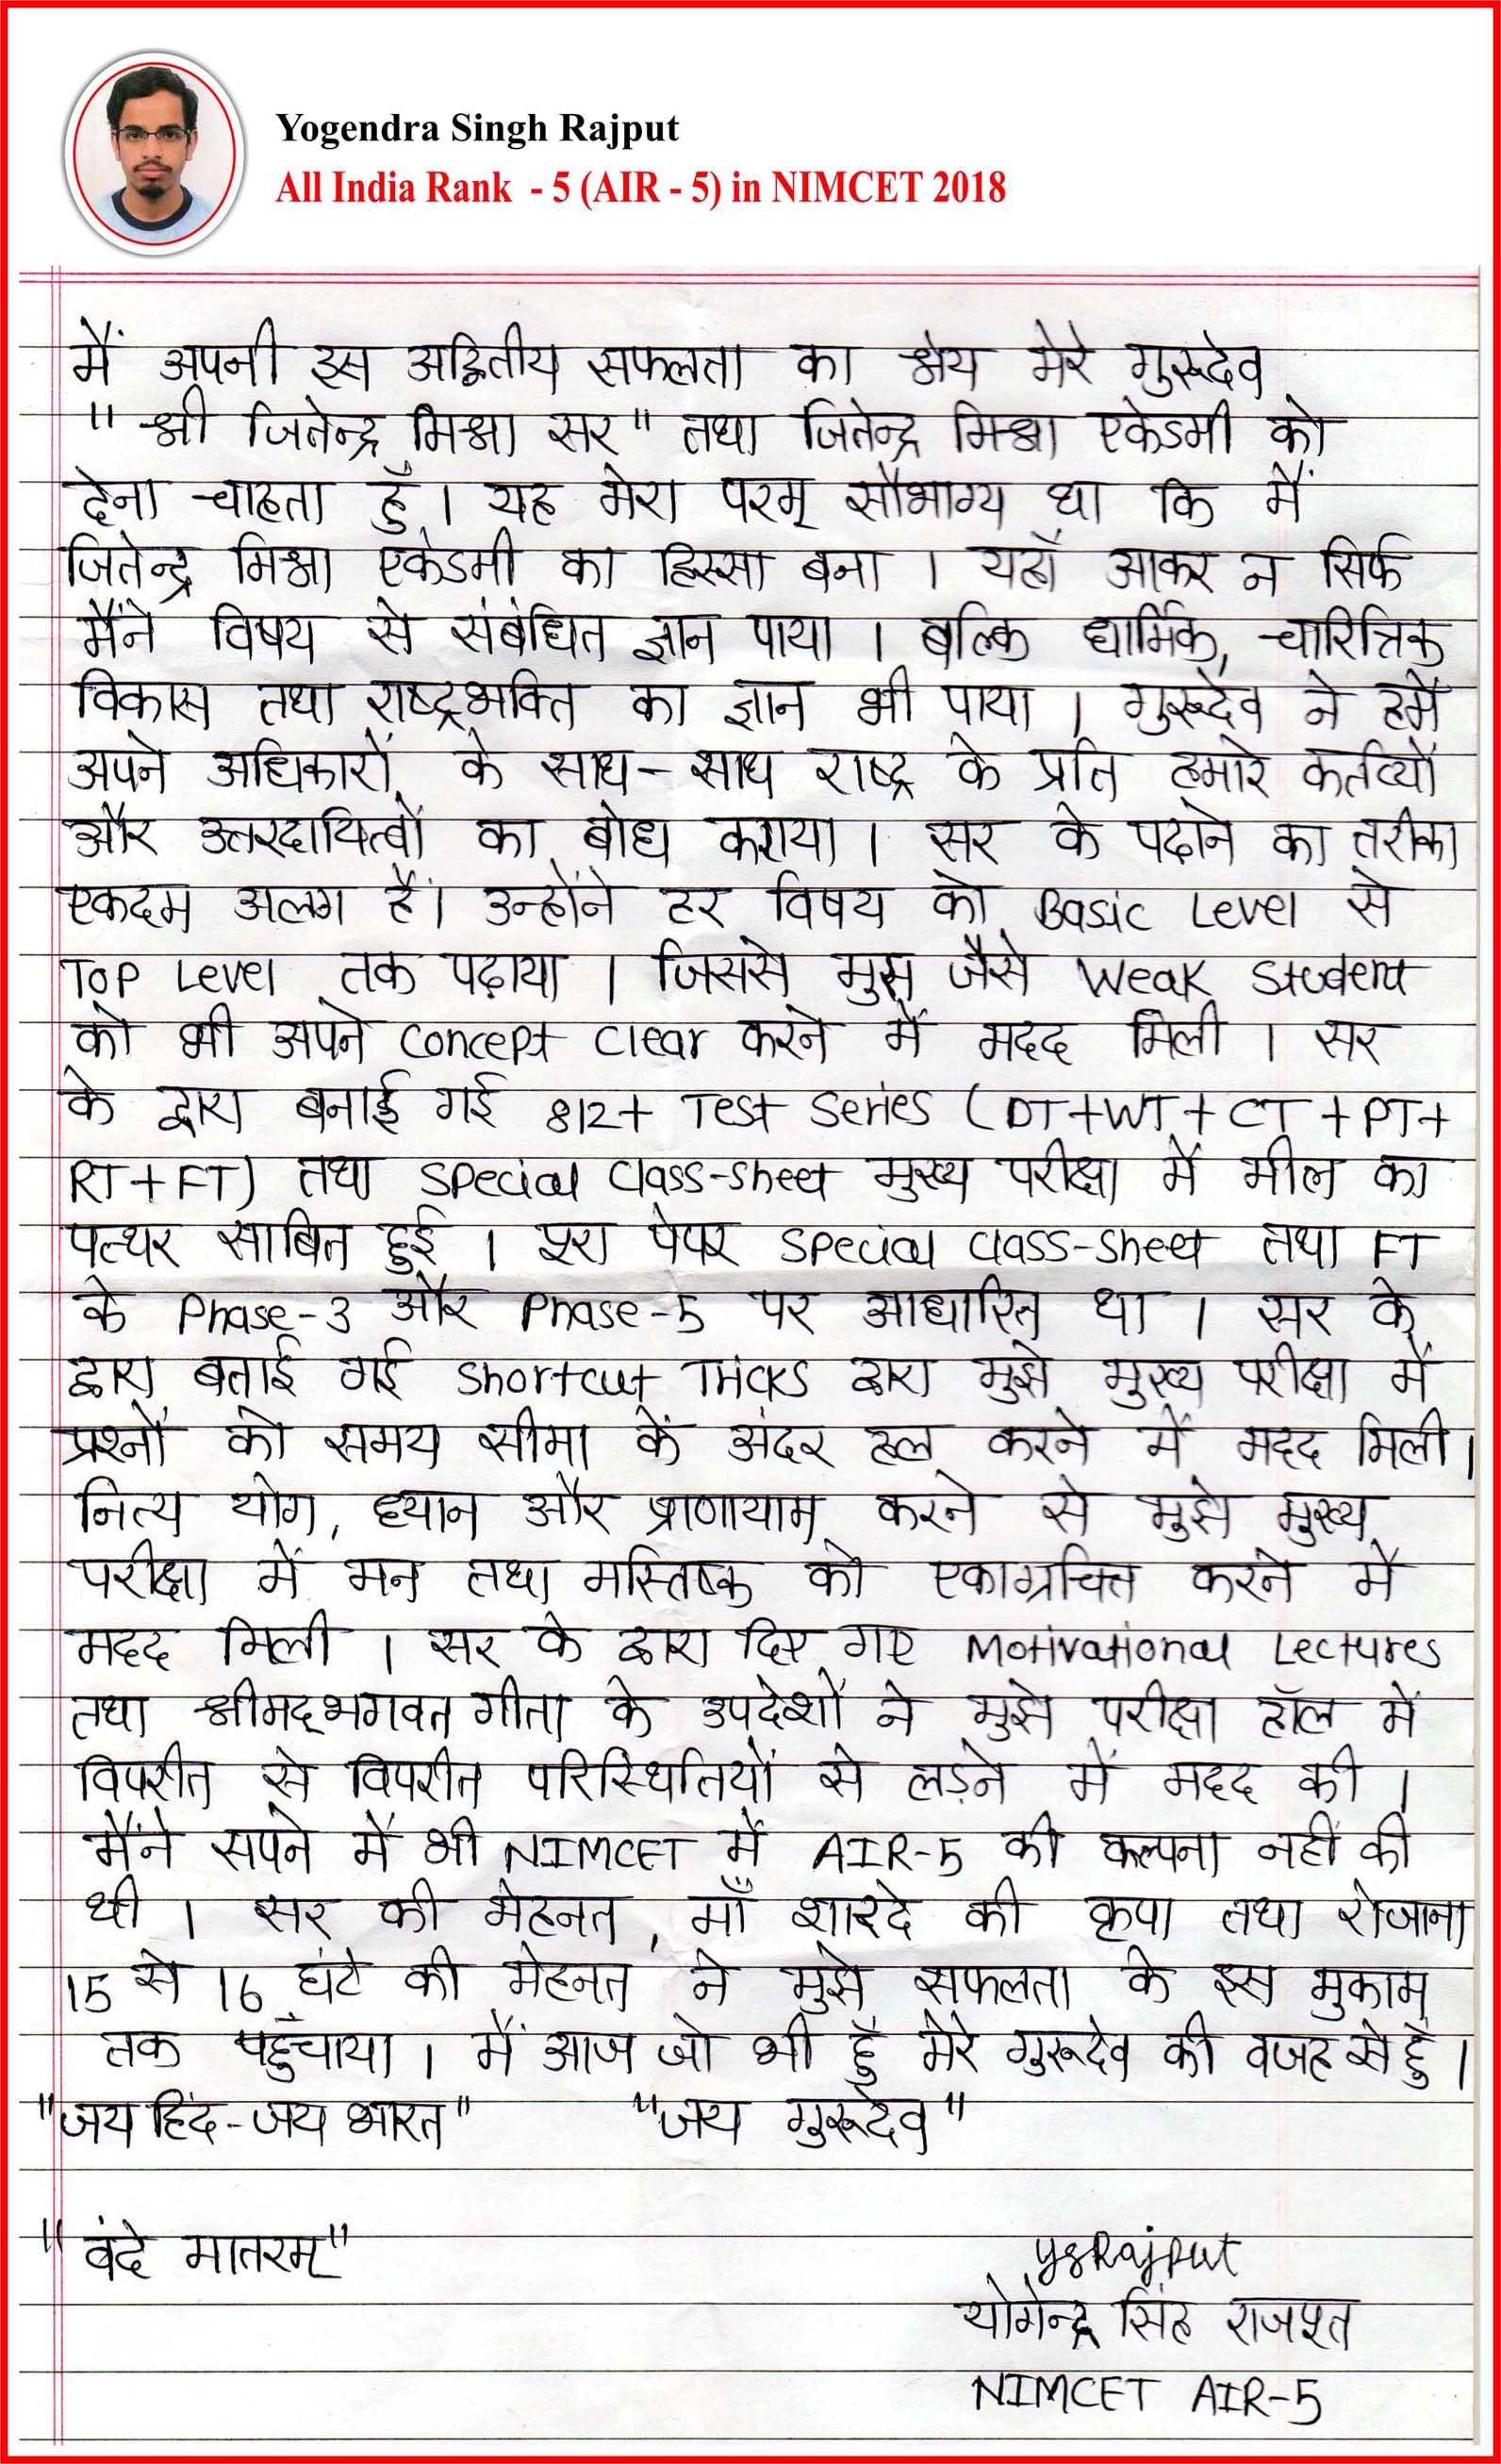 Yogendra Singh Rajput
All India Rank - 5 (AIR - 5) in NIMCET 2018
मैं अपनी इस अद्वितीय सफलता का श्रेय मेरे गुरूदेव
"श्री जितेन्द्र मिश्रा सर" तथा जितेन्द्र मिश्रा एकेडमी को
देना चाहता हूँ। यह मेरा परम् सौभाग्य था कि मैं
जितेन्द्र मिश्रा एकेडमी का हिस्सा बना । यहाँ आकर न सिर्फ
मैंने विषय से संबंधित ज्ञान पाया । बल्कि धार्मिक, चारित्रिक
विकास तथा राष्ट्रभक्ति का ज्ञान भी पाया । गुरूदेव ने हमें
अपने अधिकारों के साथ-साथ राष्ट्र के प्रति हमारे कर्तव्यों
और उत्तरदायित्वों का बोध कराया । सर के पढाने का तरीका
एकदम अलग हैं। उन्होंने हर विषय को Basic Level से
Top Level तक पढ़ाया । जिससे मुझ जैसे Weak Student
को भी अपने Concept Clear करने में मदद मिली । सर
के द्वारा बनाई गई 812+ Test Series (DT+WT+CT+PT+
RT+FT) तथा Special Class-Sheet मुख्य परीक्षा में मील का
पत्थर साबित हुई । पूरा पेपर Special Class-Sheet तथा FT
के Phase-3 और Phase-5 पर आधारित था । सर के
द्वारा बताई गई Shortcut Tricks द्वारा मुझे मुख्य परीक्षा में
प्रश्नों को समय सीमा के अंदर हल करने में मदद मिली।
नित्य योग, ध्यान और प्राणायाम करने से मुझे मुख्य
परीक्षा में मन तथा मस्तिष्क को एकाग्रचित्त करने में
मदद मिली । सर के द्वारा दिए गए Motivational Lectures
तथा श्रीमद्भगवत गीता के उपदेशों ने मुझे परीक्षा हॉल में
विपरीत से विपरीत परिस्थितियों से लड़ने में मदद की ।
मैंने सपने में भी NIMCET में AIR-5 की कल्पना नहीं की
थी । सर की मेहनत, माँ शारदे की कृपा तथा रोजाना
15 से 16 घंटे की मेहनत ने मुझे सफलता के इस मुकाम
तक पहुँचाया । मैं आज जो भी हूँ मेरे गुरूदेव की वजह से हूँ।
"जय हिंद-जय भारत" "जय गुरूदेव"
"वंदे मातरम्"
YSRajput
योगेन्द्र सिंह राजपूत
NIMCET AIR-5